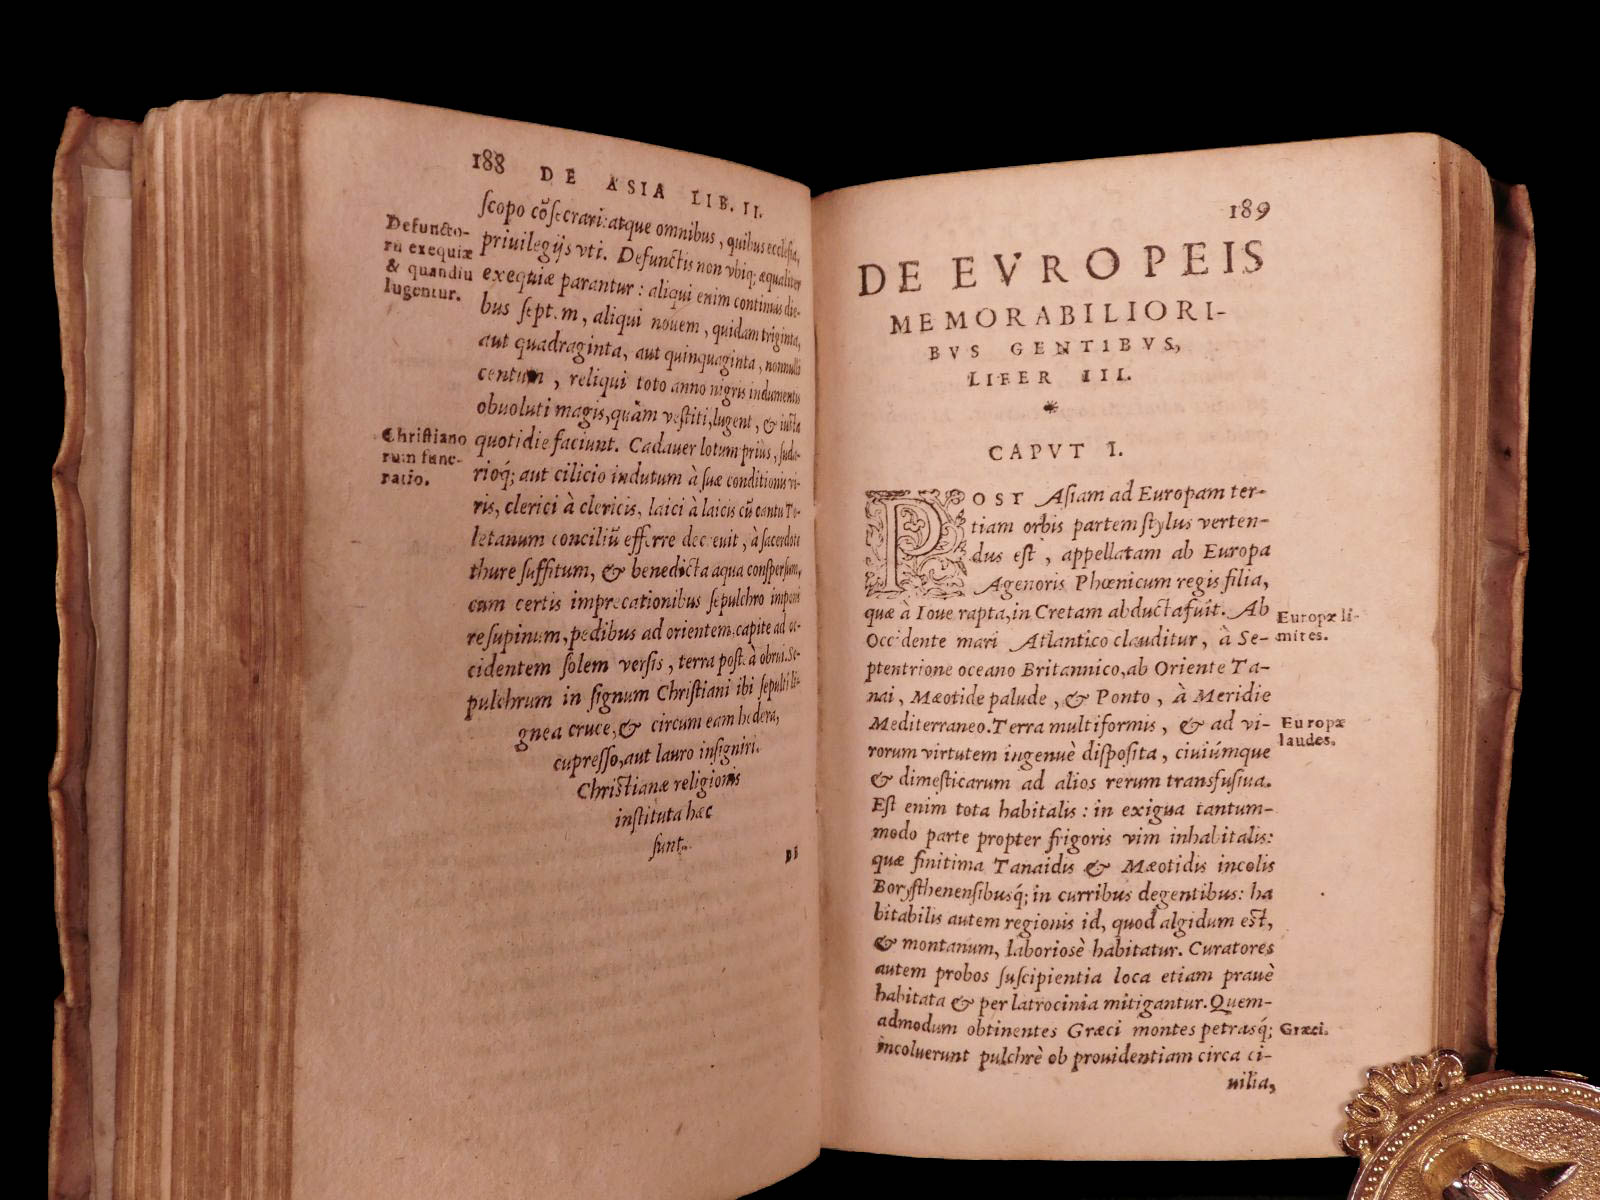 188 DE ASIA LIB. II.
ſcopo cõſecrari: atque omnibus, quibus eccleſia,
priuilegijs vti. Defunctis non vbiq; æqualiter
exequiæ parantur: aliqui enim continuis die-
bus ſeptem, aliqui nouem, quidam triginta,
aut quadraginta, aut quinquaginta, nonnulli
centum, reliqui toto anno nigris indumentis
obuoluti magis, quàm veſtiti, lugent, & iuſta
quotidie faciunt. Cadauer lotum prius, ſuda-
rioq́; aut cilicio indutum à ſuæ conditionis vi-
ris, clerici à clericis, laici à laicis cũ cantu To-
letanum conciliũ efferre decreuit, à ſacerdote
thure ſuffitum, & benedicta aqua conſperſum,
cum certis imprecationibus ſepulchro imponi
reſupinum, pedibus ad orientem, capite ad oc-
cidentem ſolem verſis, terra poſtea obrui. Se-
pulchrum in ſignum Chriſtiani ibi ſepulti li-
gnea cruce, & circum eam hedera,
cupreſſo, aut lauro inſigniri.
Chriſtianæ religionis
inſtituta hæc
ſunt.
DE
Defuncto-
rũ exequiæ
& quandiu
lugentur.
Chriſtiano
rum func-
ratio.
189
DE EVROPEIS
MEMORABILIORI-
BVS GENTIBVS,
LIBER III.
*
CAPVT I.
POST Aſiam ad Europam ter-
tiam orbis partem ſtylus verten-
dus eſt, appellatam ab Europa
Agenoris Phœnicum regis filia,
quæ à Ioue rapta, in Cretam abducta fuit. Ab
Occidente mari Atlantico clauditur, à Se-
ptentrione oceano Britannico, ab Oriente Ta-
nai, Mæotide palude, & Ponto, à Meridie
Mediterraneo. Terra multiformis, & ad vi-
rorum virtutem ingenuè diſpoſita, ciuiúmque
& dimeſticarum ad alios rerum transfuſiua.
Eſt enim tota habitalis: in exigua tantum-
modo parte propter frigoris vim inhabitalis:
quæ finitima Tanaidis & Mæotidis incolis
Boryſthenenſibusq́; in curribus degentibus: ha
bitabilis autem regionis id, quod algidum eſt,
& montanum, laborioſè habitatur. Curatores
autem probos ſuſcipientia loca etiam prauè
habitata & per latrocinia mitigantur. Quem-
admodum obtinentes Græci montes petrasq́;
incoluerunt pulchrè ob prouidentiam circa ci-
uilia,
Europæ li-
mites.
Europæ
laudes.
Græci.